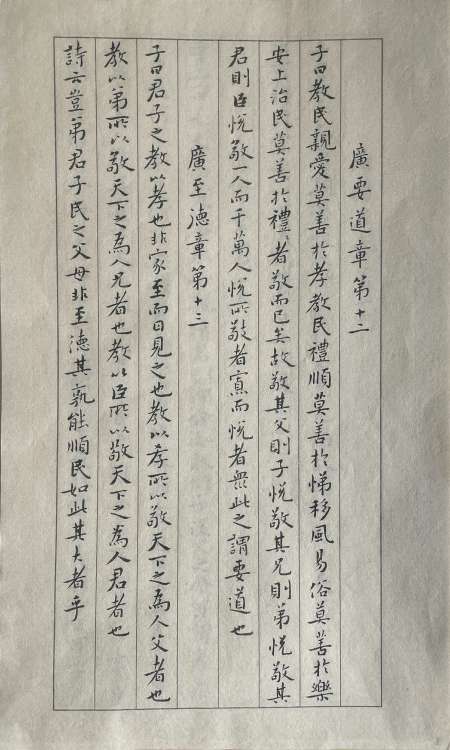 廣要道章第十二
子曰教民親愛莫善於孝教民禮順莫善於悌移風易俗莫善於樂
安上治民莫善於禮、者敬而已矣故敬其父則子悅敬其兄則弟悅敬其
君則臣悅敬一人而千萬人悅所敬者寡而悅者衆此之謂要道也
廣至德章第十三
子曰君子之教以孝也非家至而日見之也教以孝所以敬天下之為人父者也
教以弟所以敬天下之為人兄者也教以臣所以敬天下之為人君者也
詩云豈弟君子民之父母非至德其孰能順民如此其大者乎